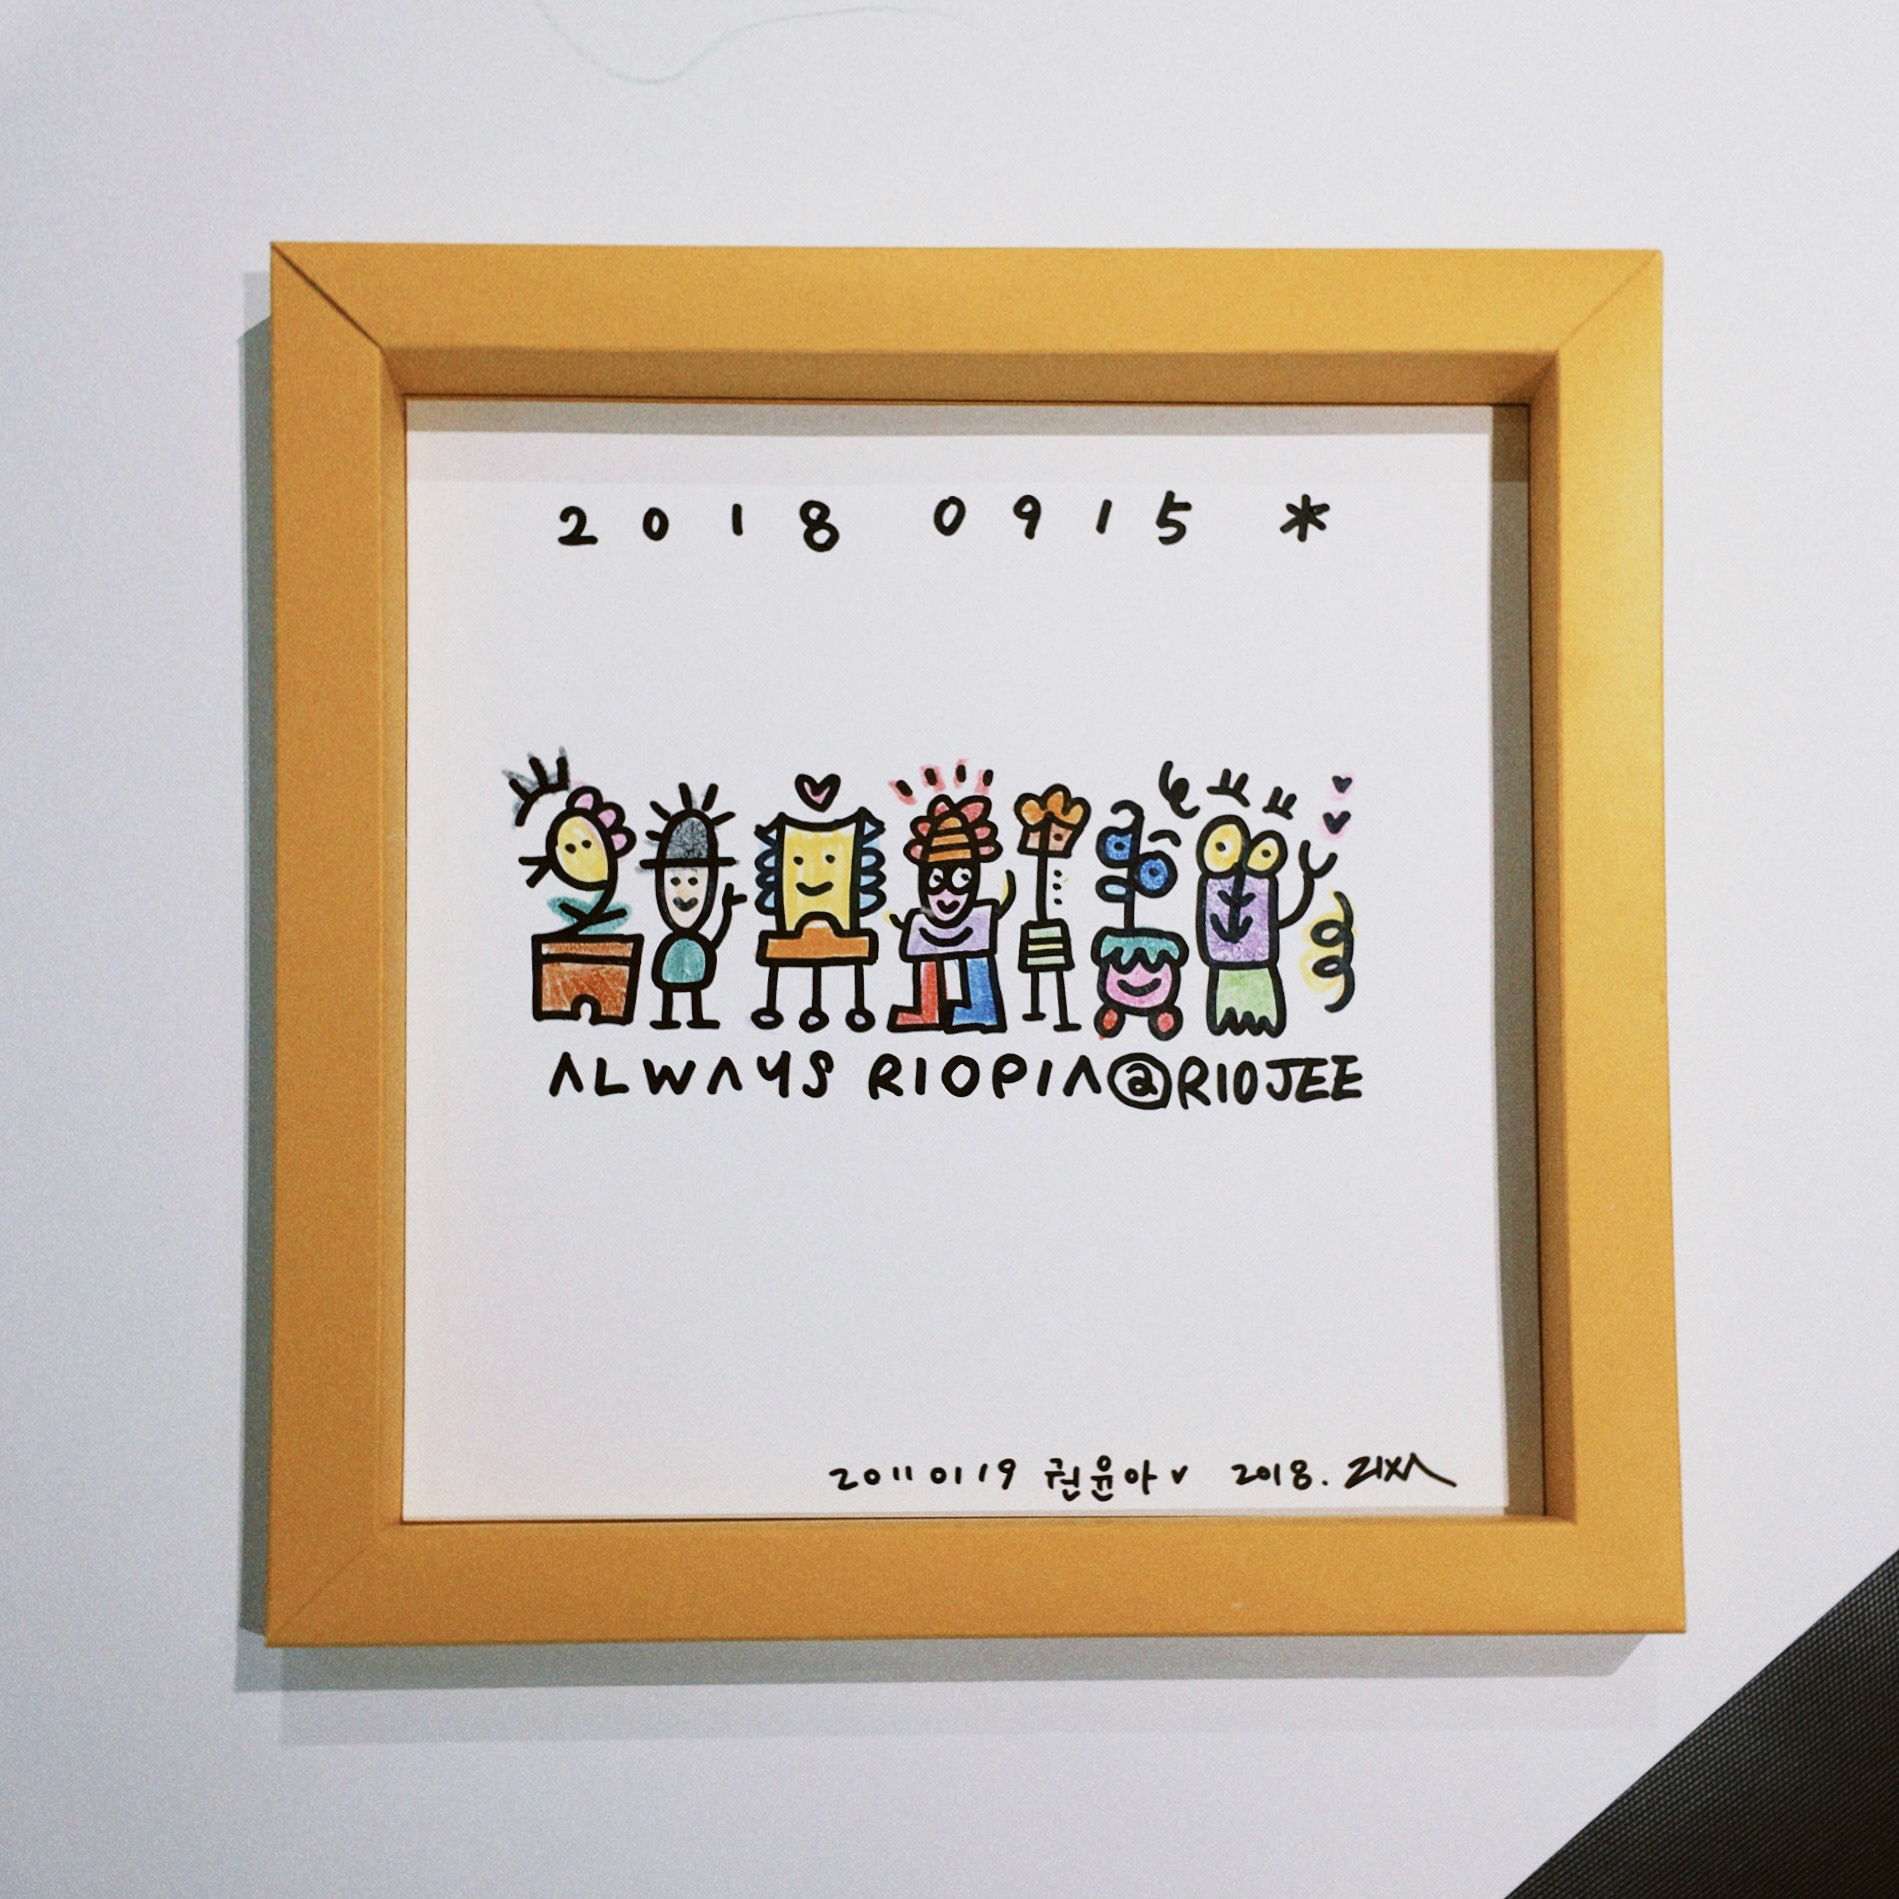 2018 0915 *
ALWAYS RIOPIA@RIOJEE
20110119 권윤아 v 2018.